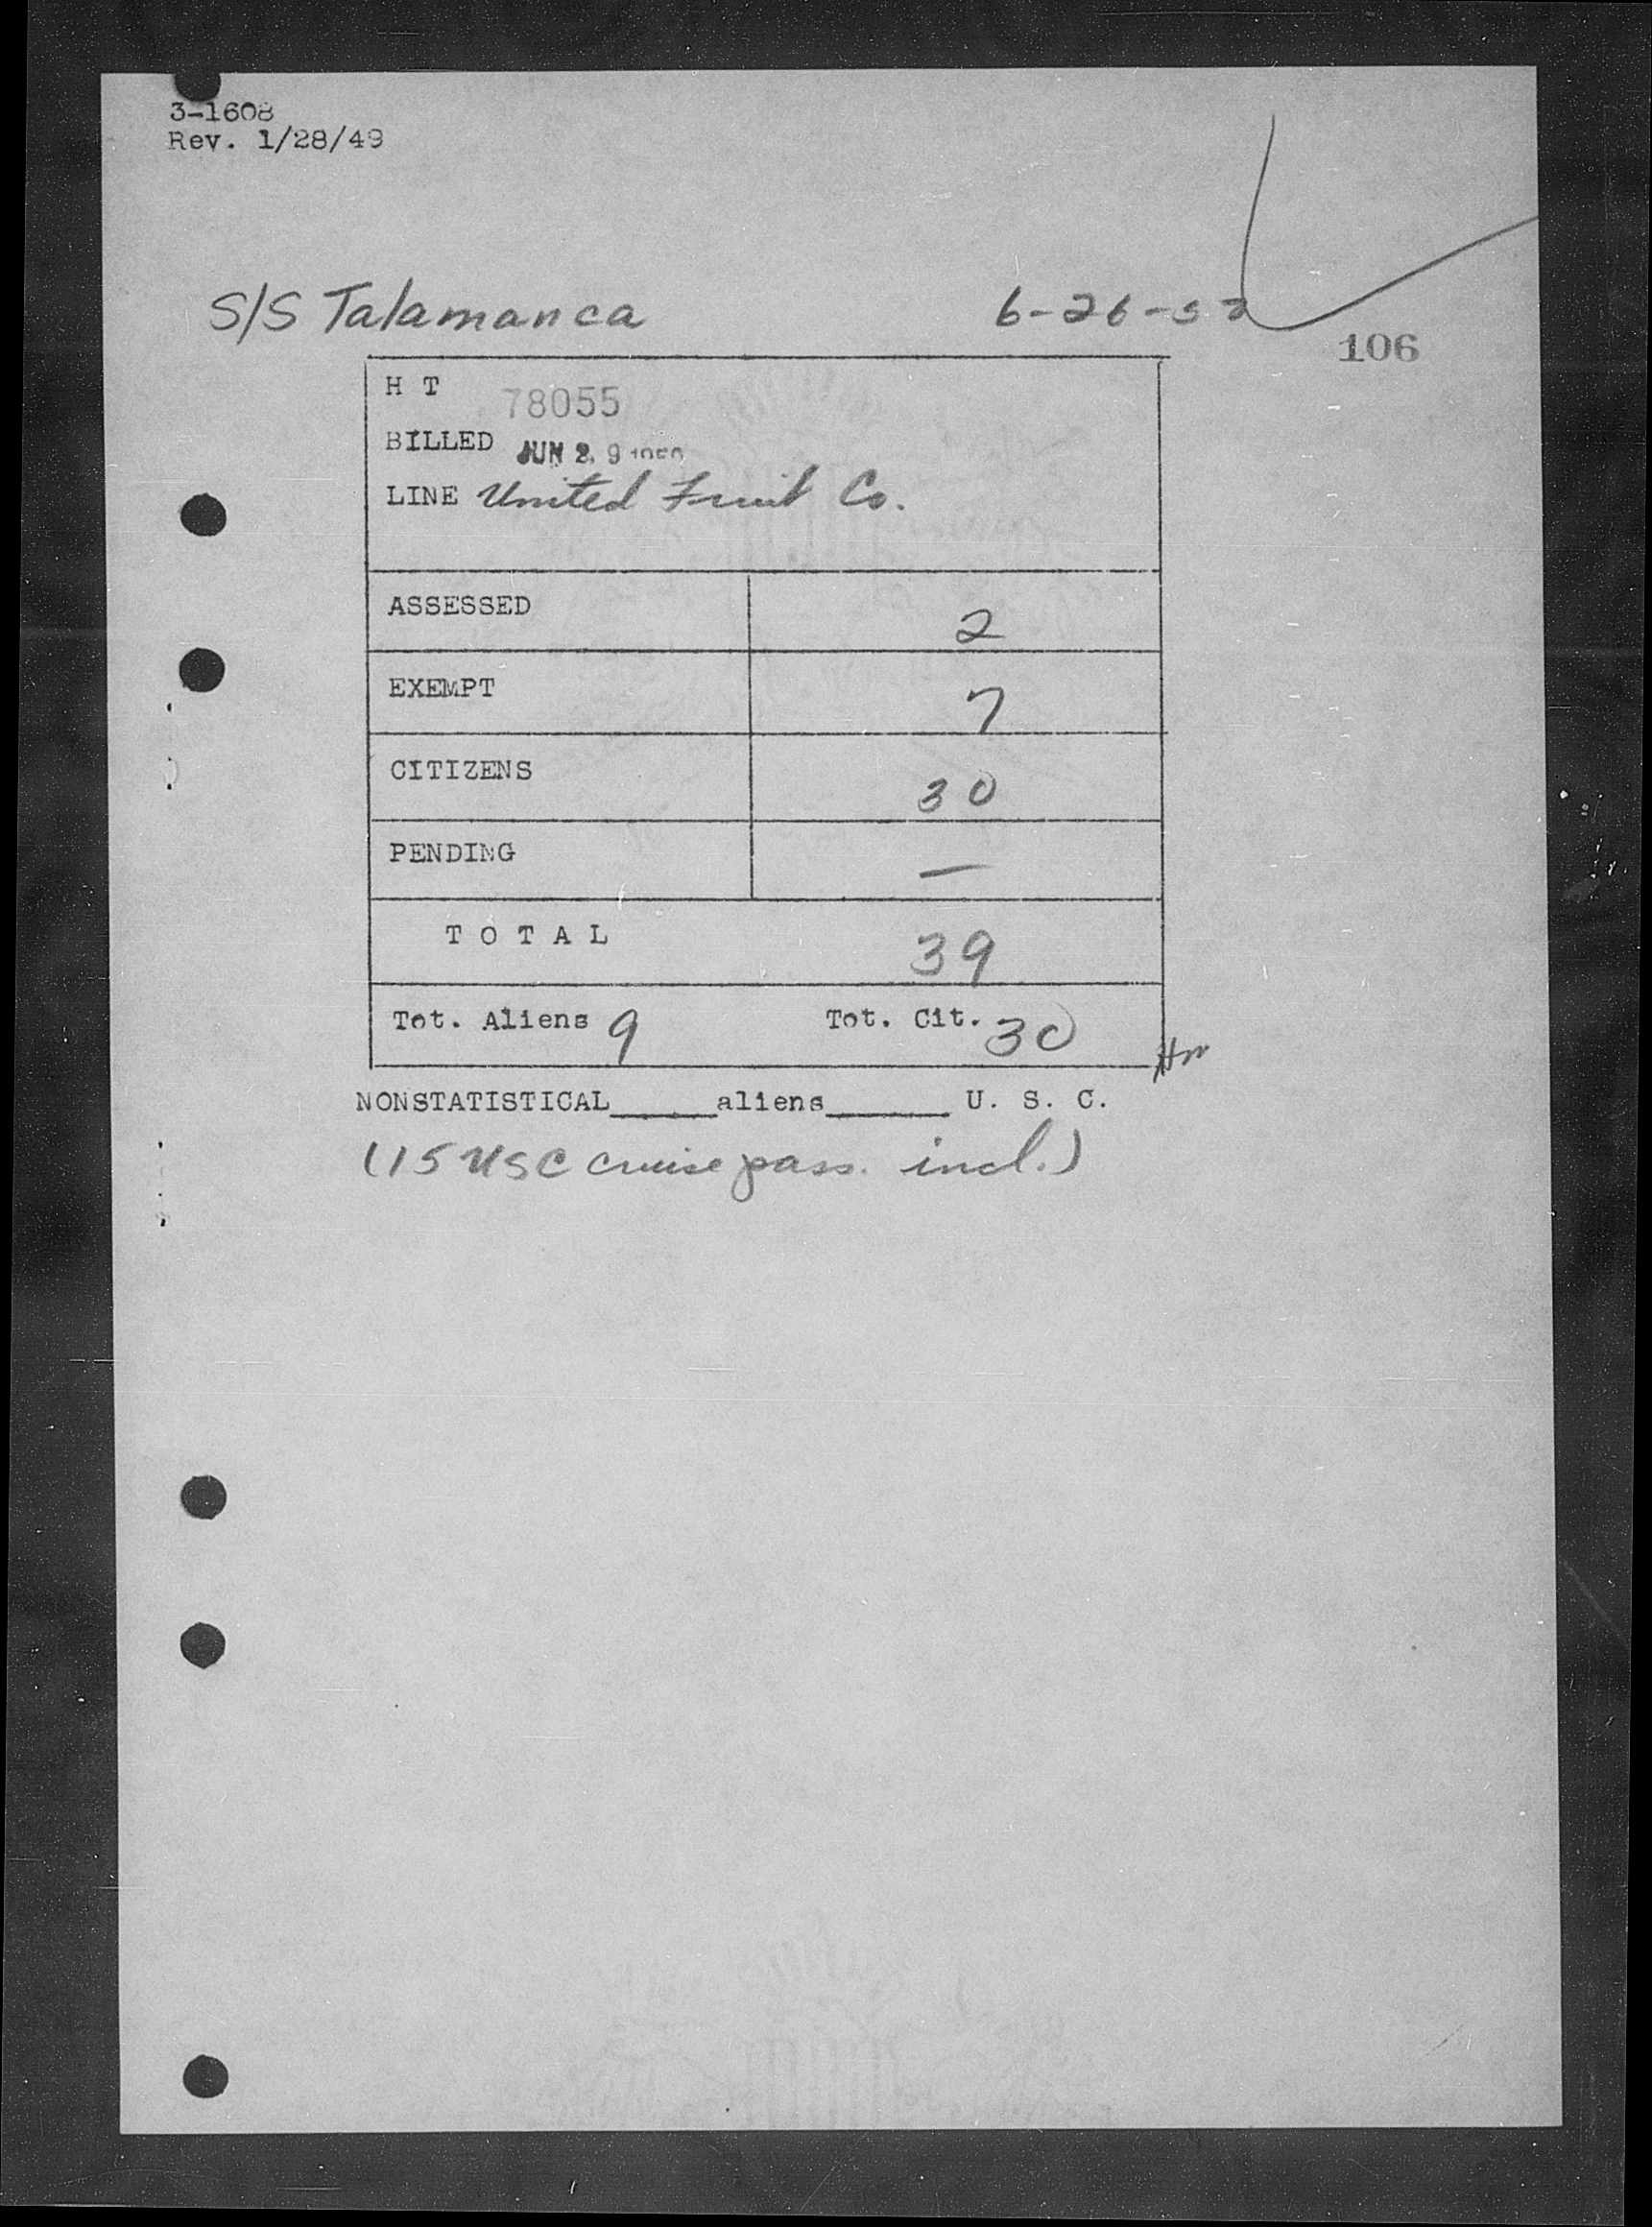 3-1608
Rev. 1/28/49
S/S Talamanca 6-26-52
106
H T 78055
BILLED JUN 29
LINE United Fruit Co.
ASSESSED 2
EXEMPT 7
CITIZENS 30
PENDING —
T O T A L 39
Tot. Aliens 9 Tot. Cit. 30
NONSTATISTICAL_____aliens______ U. S. C.
(15 USC cruise pass. incl.)